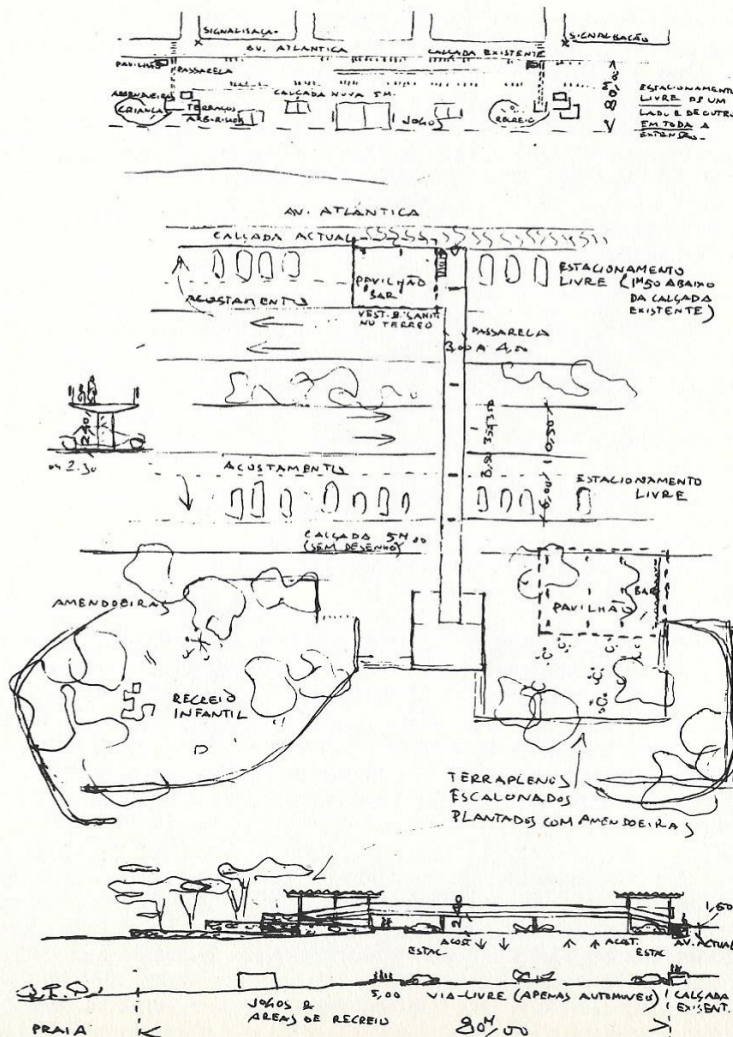 SIGNALISAÇÃO
SIGNALISAÇÃO
AV. ATLANTICA
CALÇADA EXISTENTE
PAVILHÃO
PASSARELA
CALÇADA NOVA 5M.
AMENDOEIRAS
CRIANÇA
TERRAÇOS
ARBORISADOS
JOGOS
RECREIO
80,00
ESTACIONAMENTO
LIVRE DE UM
LADO E DE OUTRO
EM TODA A
EXTENSÃO.
AV. ATLÂNTICA
CALÇADA ACTUAL
PAVILHÃO
BAR
ESTACIONAMENTO
LIVRE (1M50 ABAIXO
DA CALÇADA
EXISTENTE)
ACOSTAMENTO
VEST. & SANIT.
NO TERREO
PASSARELA
3,00 A 4,00
2.30
ACOSTAMENTO
6,00
ESTACIONAMENTO
LIVRE
CALÇADA 5M00
(SEM DESENHO)
AMENDOEIRAS
BAR
PAVILHÃO
RECREIO
INFANTIL
TERRAPLENOS
ESCALONADOS
PLANTADOS COM AMENDOEIRAS
2.40
1,50
ESTAC
ACOST
ACOST.
ESTAC
AV. ACTUAL
PRAIA
JOGOS &
AREAS DE RECREIO
5,00
VIA-LIVRE (APENAS AUTOMOVEIS)
CALÇADA
EXISENT.
80M,00